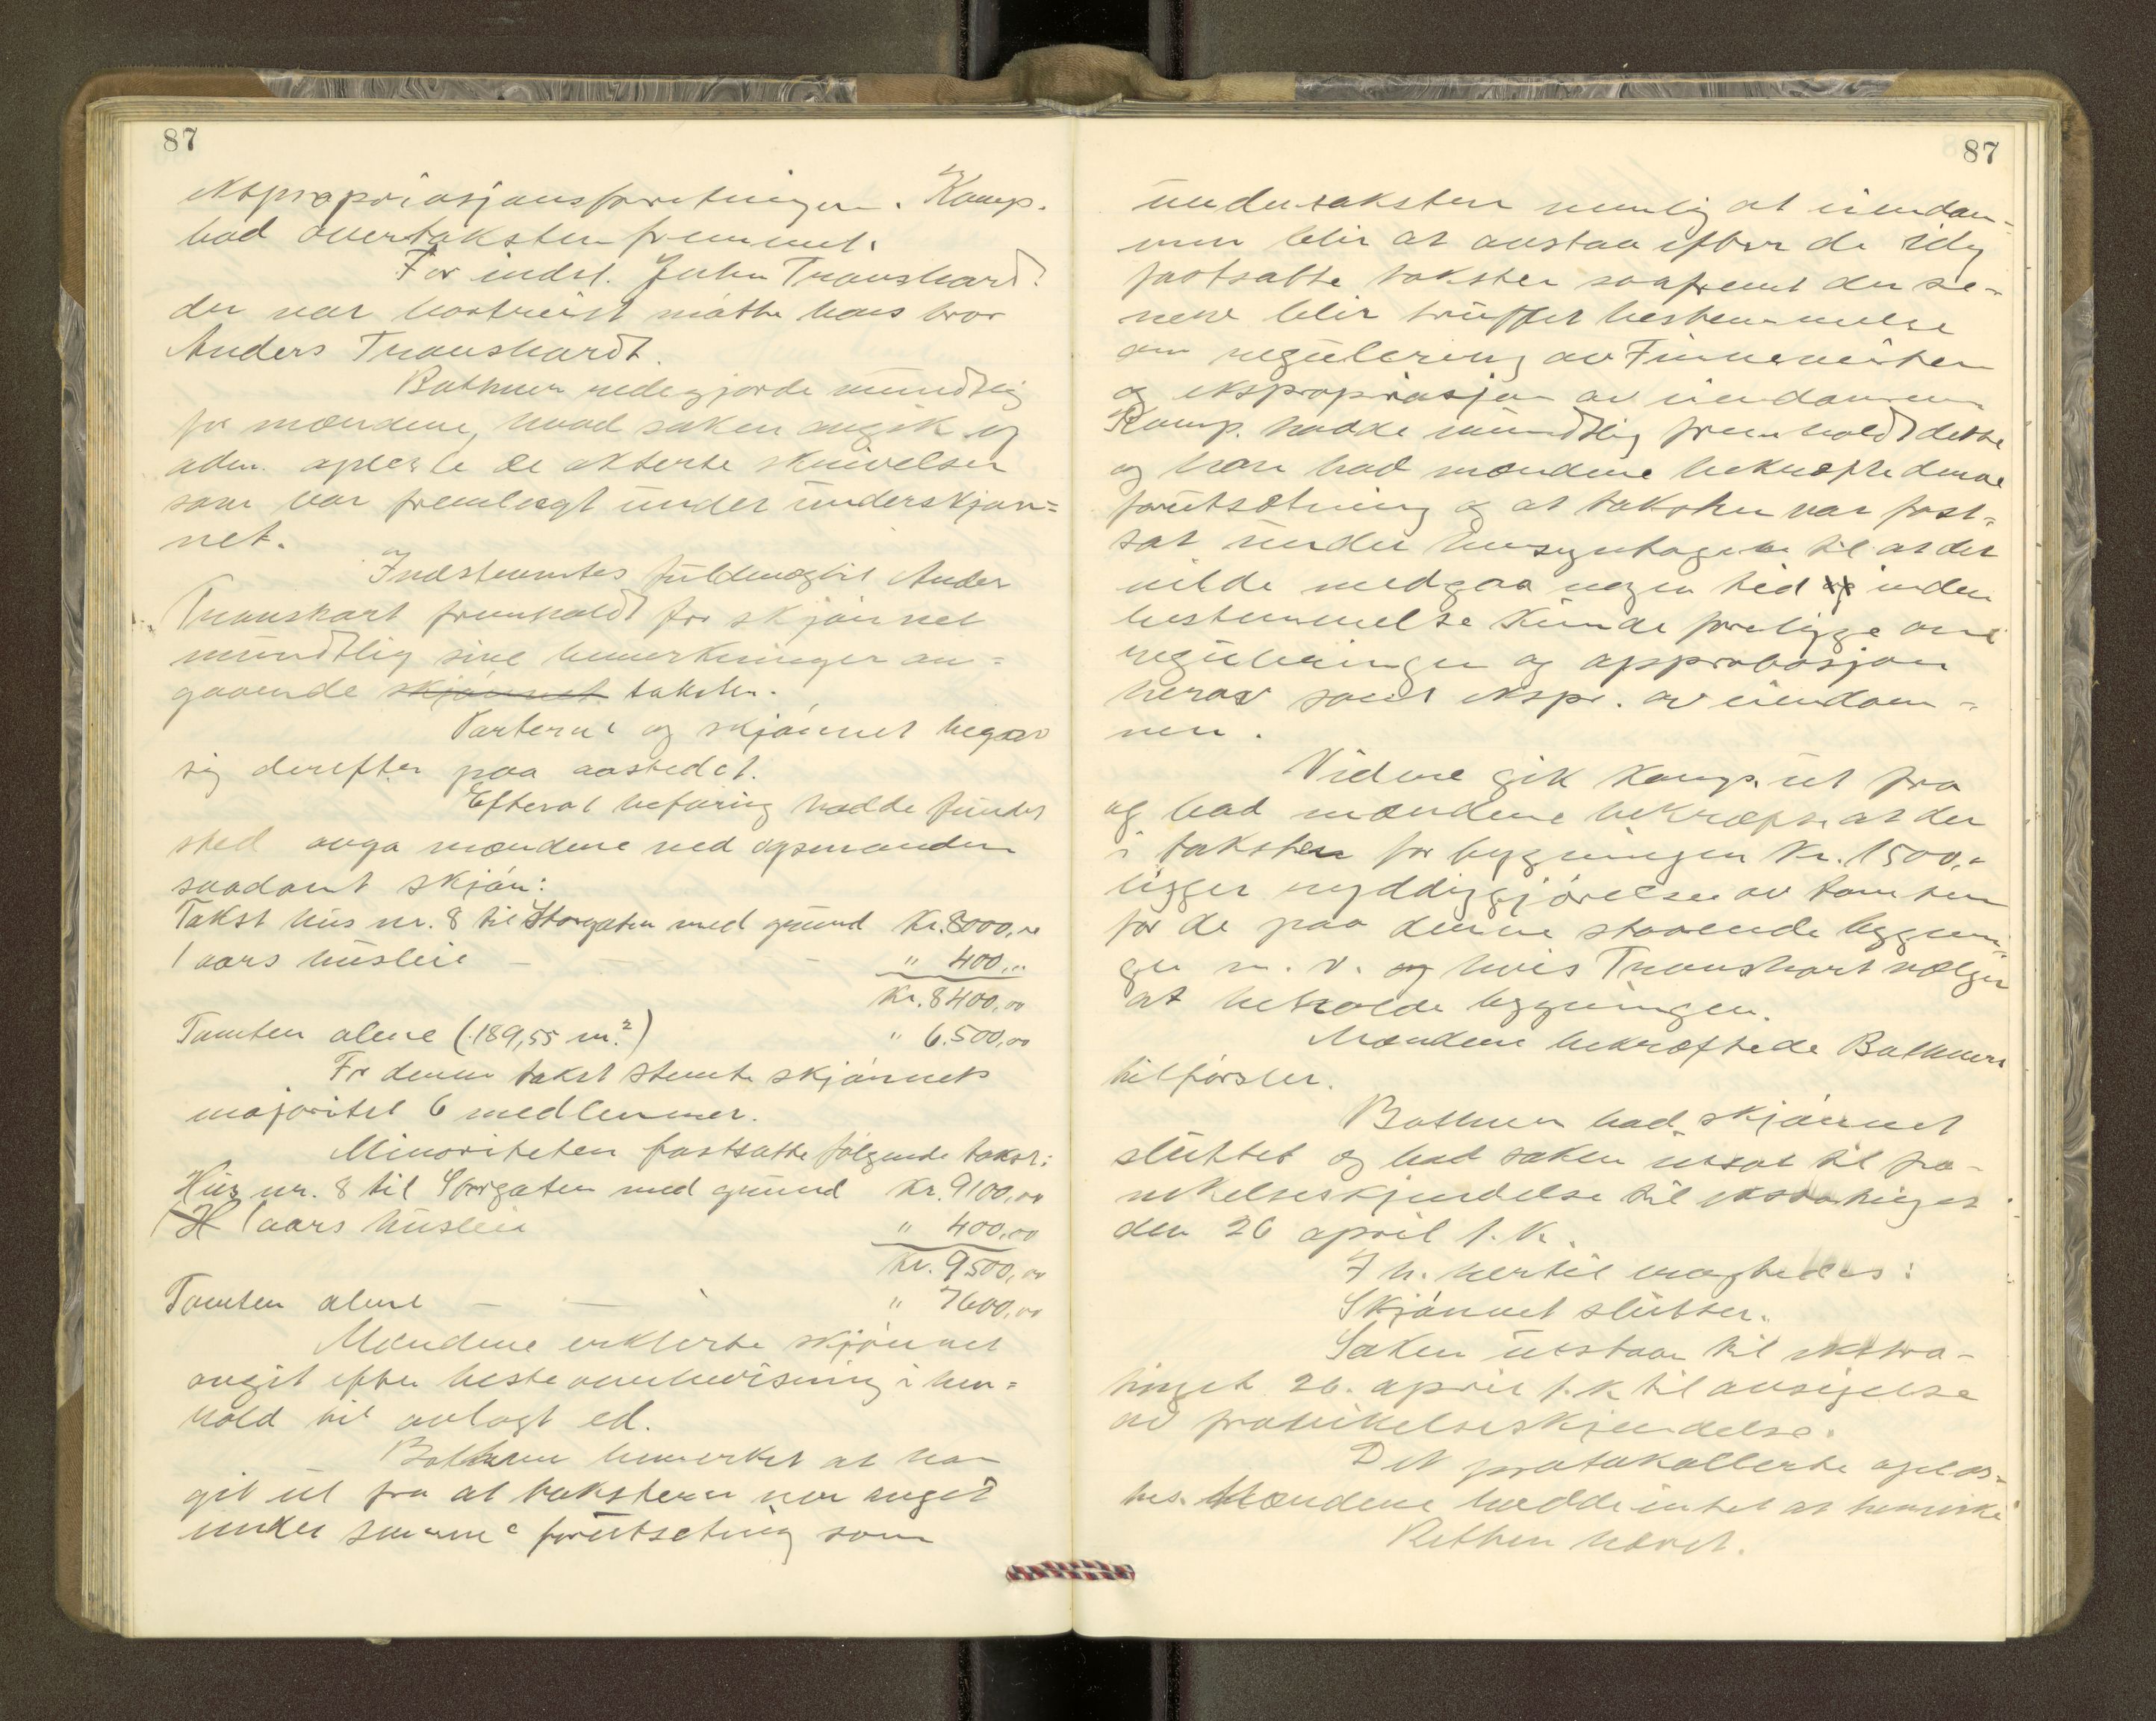 87
ekspropriasjonsforretningen. Komp.
bad overtaksten fremmet.
For indst. John Transhardt
der var bortreist møtte hans bror
Anders Transhardt.
Bothner redegjorde mundtlig
for mændene, hvad saken angik og
adm. opleste de akterte skrivelser
som var fremlagt under underskjøn=
net.
Indstevntes fuldmægtil Anders
Transhart fremholdt for skjønnet
mundtlig sine bemerkninger an=
gaaende skjønnet taksten.
Parterne og skjønnet begav
sig derefter paa aastedet.
Efterat befaring hadde fundet
sted avga mændene med opmanden
saadant skjøn:
Takst hus nr. 8 til Storgaten med grund Kr. 8000,00
1 aars husleie - - - " 400,00
Kr. 8400,00
Tomten alene (189,55 m.²) " 6.500,00
For denne takst stemte skjønnets
majoritet 6 medlemmer.
Minoriteten fastsatte følgende takst:
Hus nr. 8 til Storgaten med grund Kr. 9100,00
H 1 aars husleie " 400,00
Kr. 9500,00
Tomten alene - - - " 7600,00
Mændene erklærte skjønnet
avgit efter beste overbevisning i hen=
hold til avlagt ed.
Bothner bemerket at han
git ut fra at taksterne var avgit
under samme forutsetning som
87
undertaksten nemlig at eiendom-
men blir at avstaa efter de idag
fastsatte takster saafremt der se-
nere blir truffet bestemmelse
om regulering av Finneveiten
og ekspropriasjon av eiendommen
Komp. hadde mundtlig fremholdt dette
og han bad mændene bekræfte denne
forutsætning og at taksten var fast-
sat under hensyntagen til at det
vilde medgaa nogen tid og inden
bestemmelse kunde foreligge om
reguleringen og approbasjon
herav samt ekspr. av eiendom-
men.
Videre gik komp. ut fra
og bad mændene bekræfte at der
i taksten for bygningen kr. 1500,-
ligger ryddiggjørelse av tomten
for de paa denne staaende bygnin-
ger m. v. og hvis Transhart vælger
at beholde bygningen.
Mændene bekræftede Bothners
tilførsler.
Bothner bad skjønnet
sluttet og bad saken utsat til fra-
vikelseskjendelse til ekstratinget
den 26 april f. k.
I h. hertil vagtedes:
Skjønnet slutter.
Saken utstaar til ekstra-
tinget 26. april f. k. til avsigelse
av fravikelseskjendelse.
Det protokollerte oplæs-
tes. Mændene hadde intet at bemerke
Retten hævet.